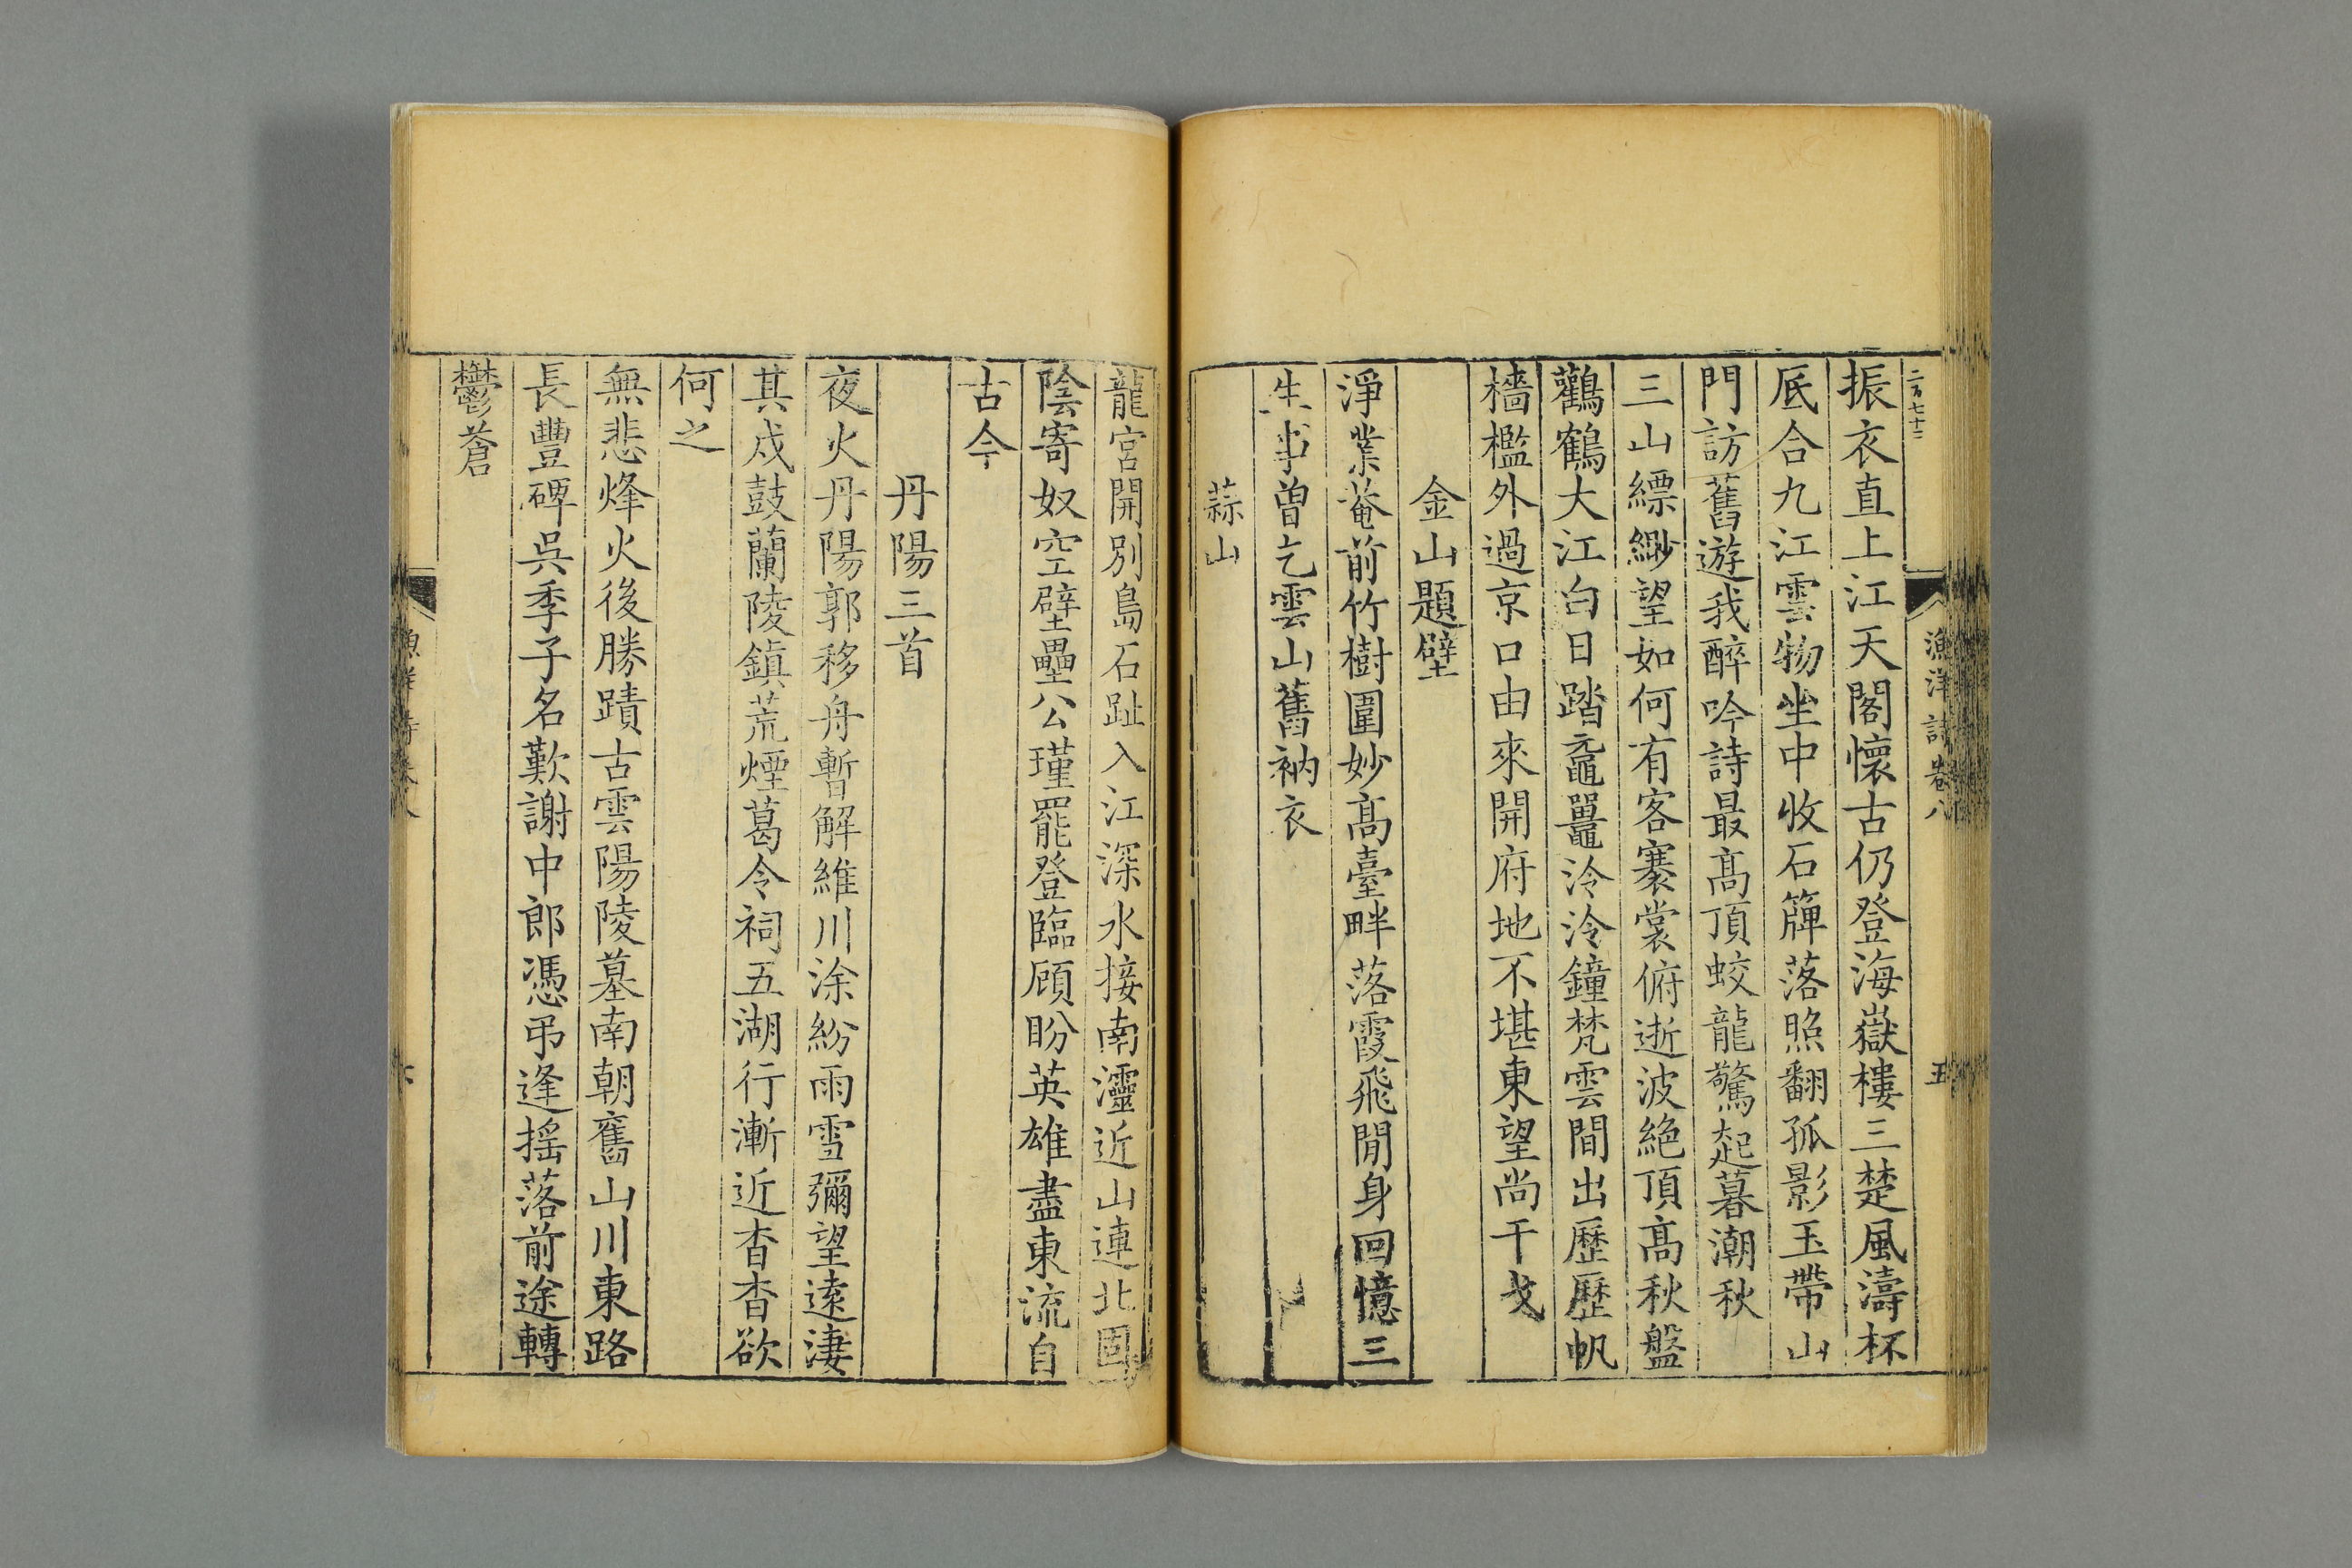 二百七十二
漁洋詩卷八
五
振衣直上江天閣懷古仍登海嶽樓三楚風濤杯
底合九江雲物坐中收石簰落照翻孤影玉帶山
門訪舊遊我醉吟詩最高頂蛟龍驚起暮潮秋
三山縹緲望如何有客褰裳俯逝波絶頂高秋盤
鸛鶴大江白日踏黿鼉泠泠鐘梵雲間出歷歷帆
檣檻外過京口由來開府地不堪東望尚干戈
金山題壁
淨業菴前竹樹圍妙高臺畔落霞飛閒身回憶三
生事曾乞雲山舊衲衣
蒜山
龍宮開別島石趾入江深水接南灵近山連北固
陰寄奴空壁壘公瑾罷登臨顧盼英雄盡東流自
古今
丹陽三首
夜火丹陽郭移舟暫解維川涂紛雨雪彌望遠淒
其戍鼓蘭陵鎮荒煙葛令祠五湖行漸近杳杳欲
何之
無悲烽火後勝蹟古雲陽陵墓南朝舊山川東路
長豐碑吳季子名歎謝中郎憑弔逢搖落前途轉
鬱蒼